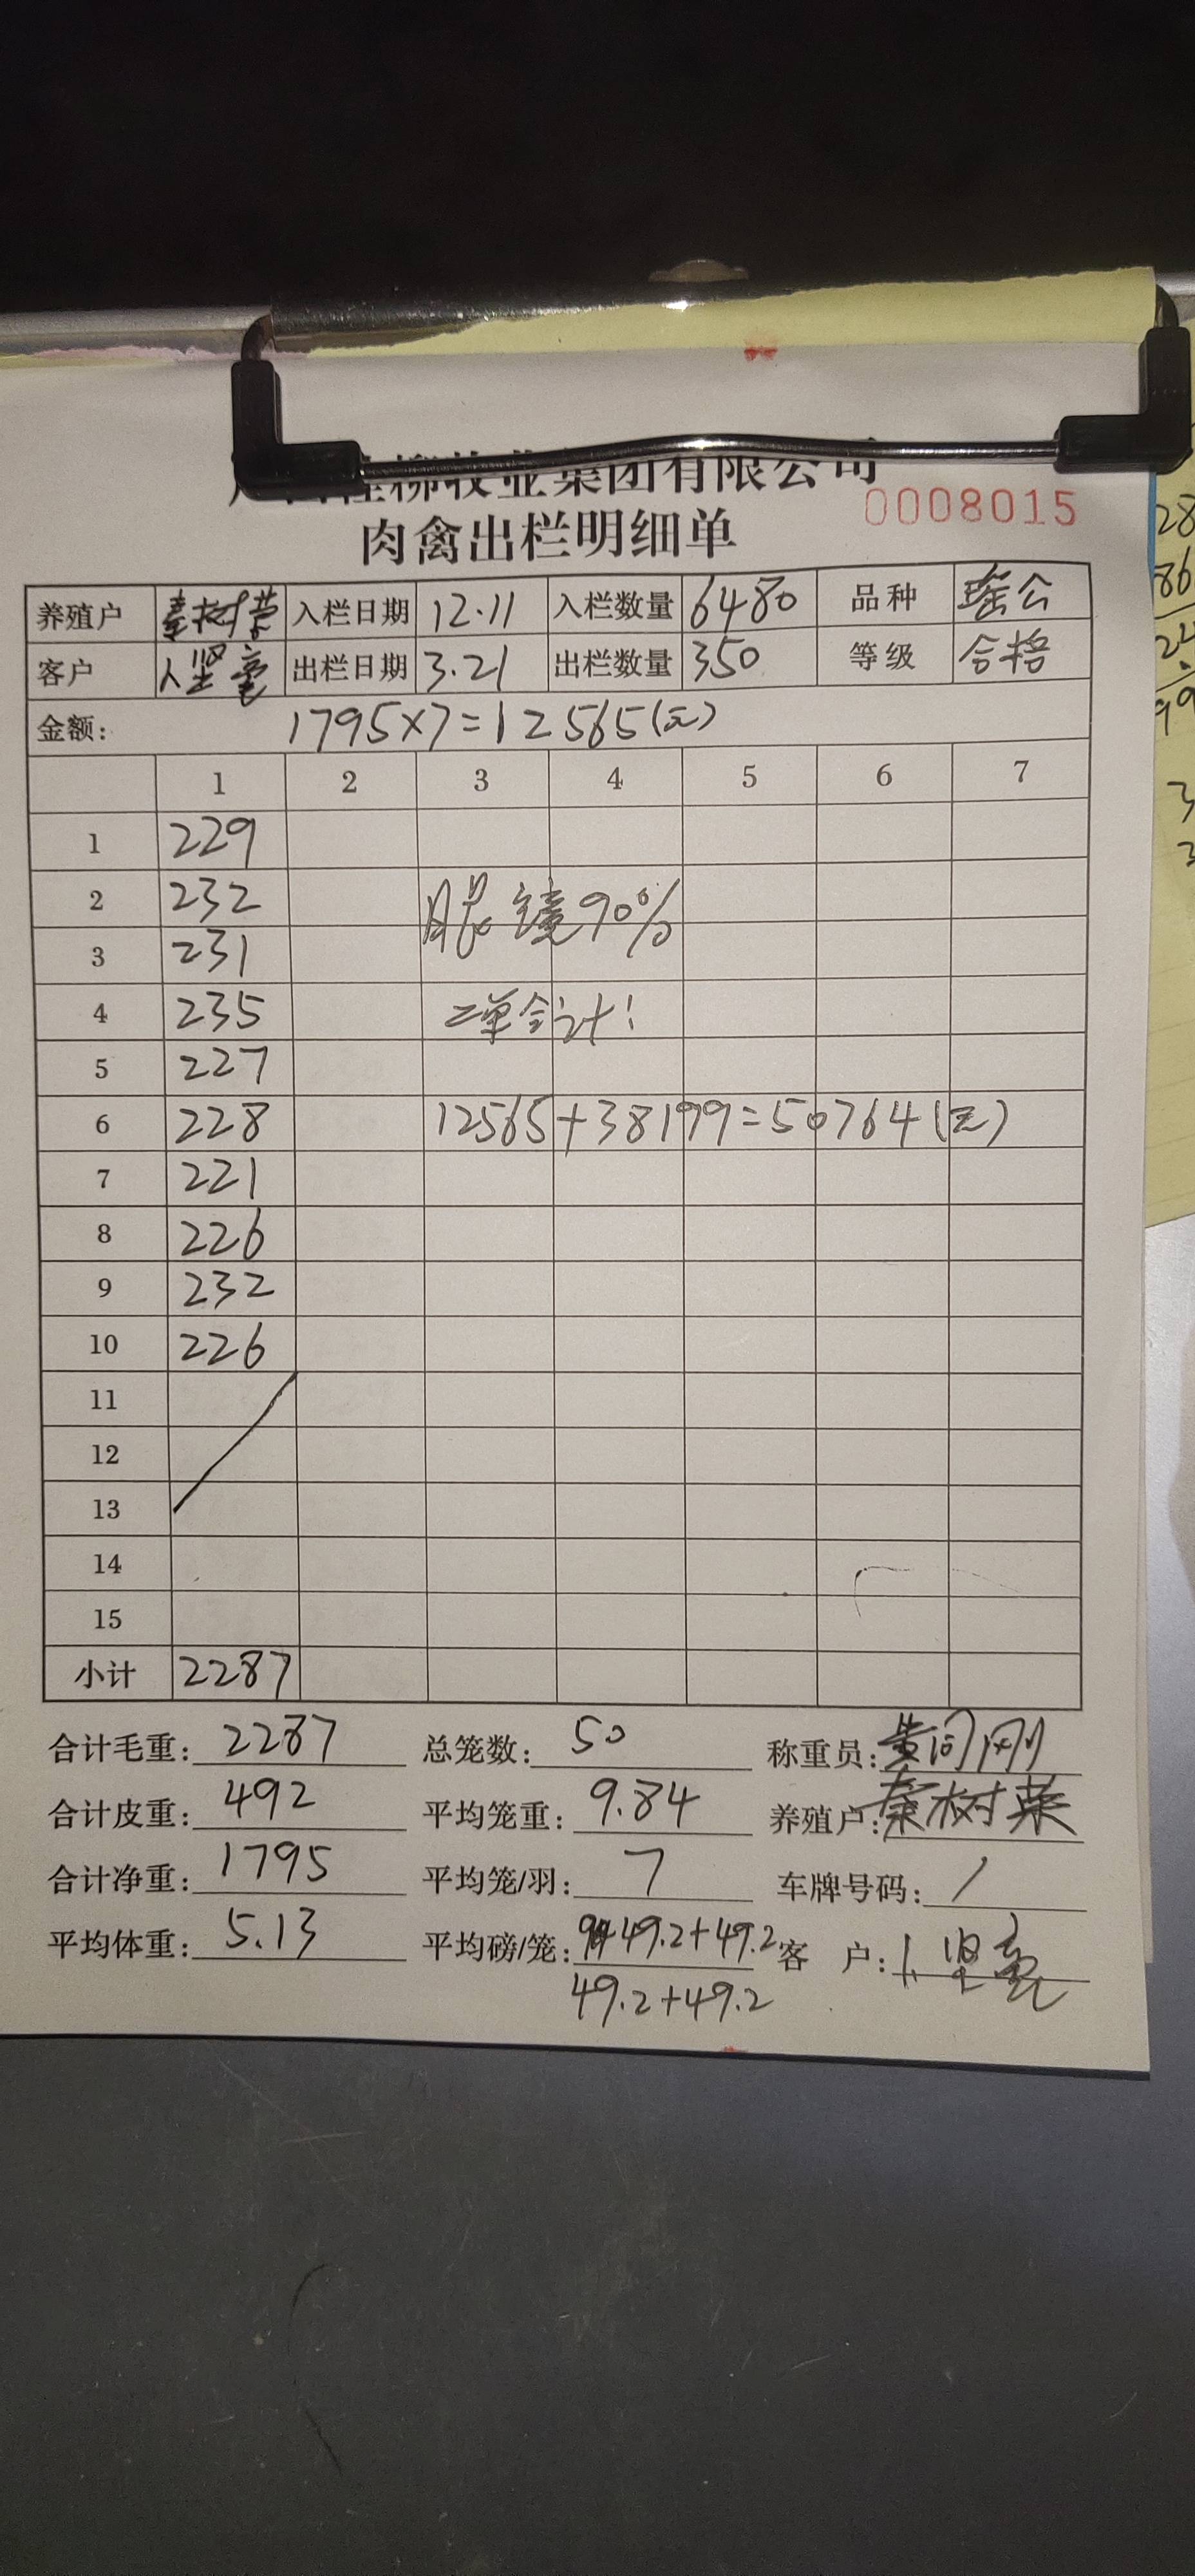 柳牧业集团有限公司
0008015
肉禽出栏明细单
养殖户 秦树荣 入栏日期 12.11 入栏数量 6480 品种 瑶公
客户 坚亮 出栏日期 3.21 出栏数量 350 等级 合格
金额: 1795×7=12565(元)
1 2 3 4 5 6 7
1 229
2 232 眼镜90%
3 231
4 235 二单合计:
5 227
6 228 12565+38199=50764(元)
7 221
8 226
9 232
10 226
11
12
13
14
15
小计 2287
合计毛重: 2287 总笼数: 50 称重员:
合计皮重: 492 平均笼重: 9.84 养殖户: 秦树荣
合计净重: 1795 平均笼/羽: 7 车牌号码: /
平均体重: 5.13 平均磅/笼: 49.2+49.2 客 户: 坚亮
49.2+49.2
28
86